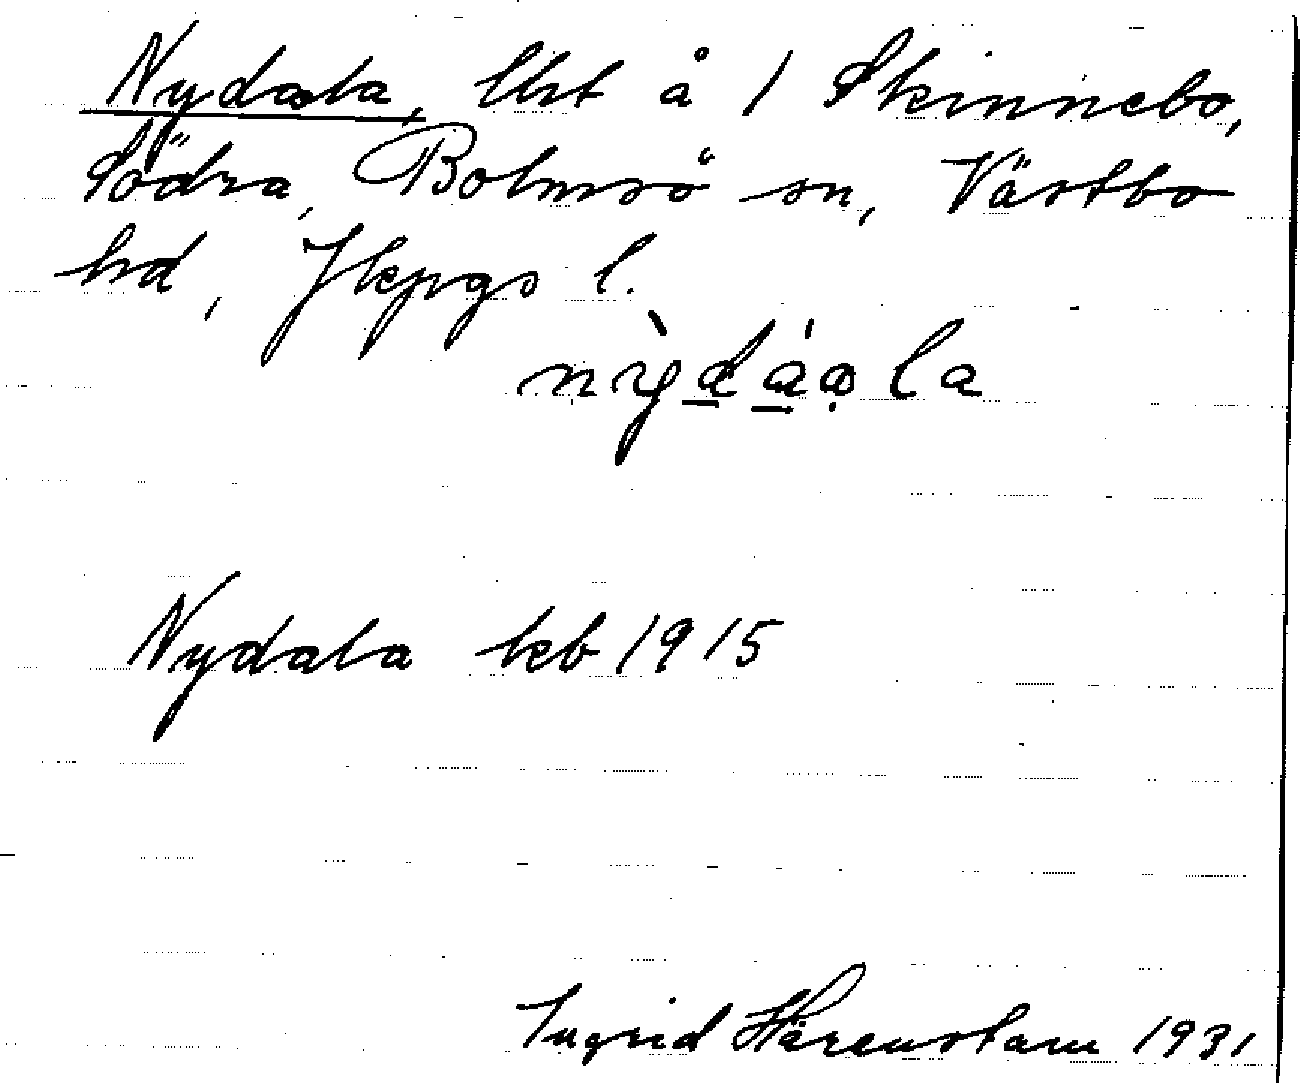 Nydala, lht å 1 Skinnebo,
Södra, Bolmsö sn, Västbo
hd, Jkpgs l.
nỳdáọla
Nydala kb 1915
Ingrid Härenstam 1931